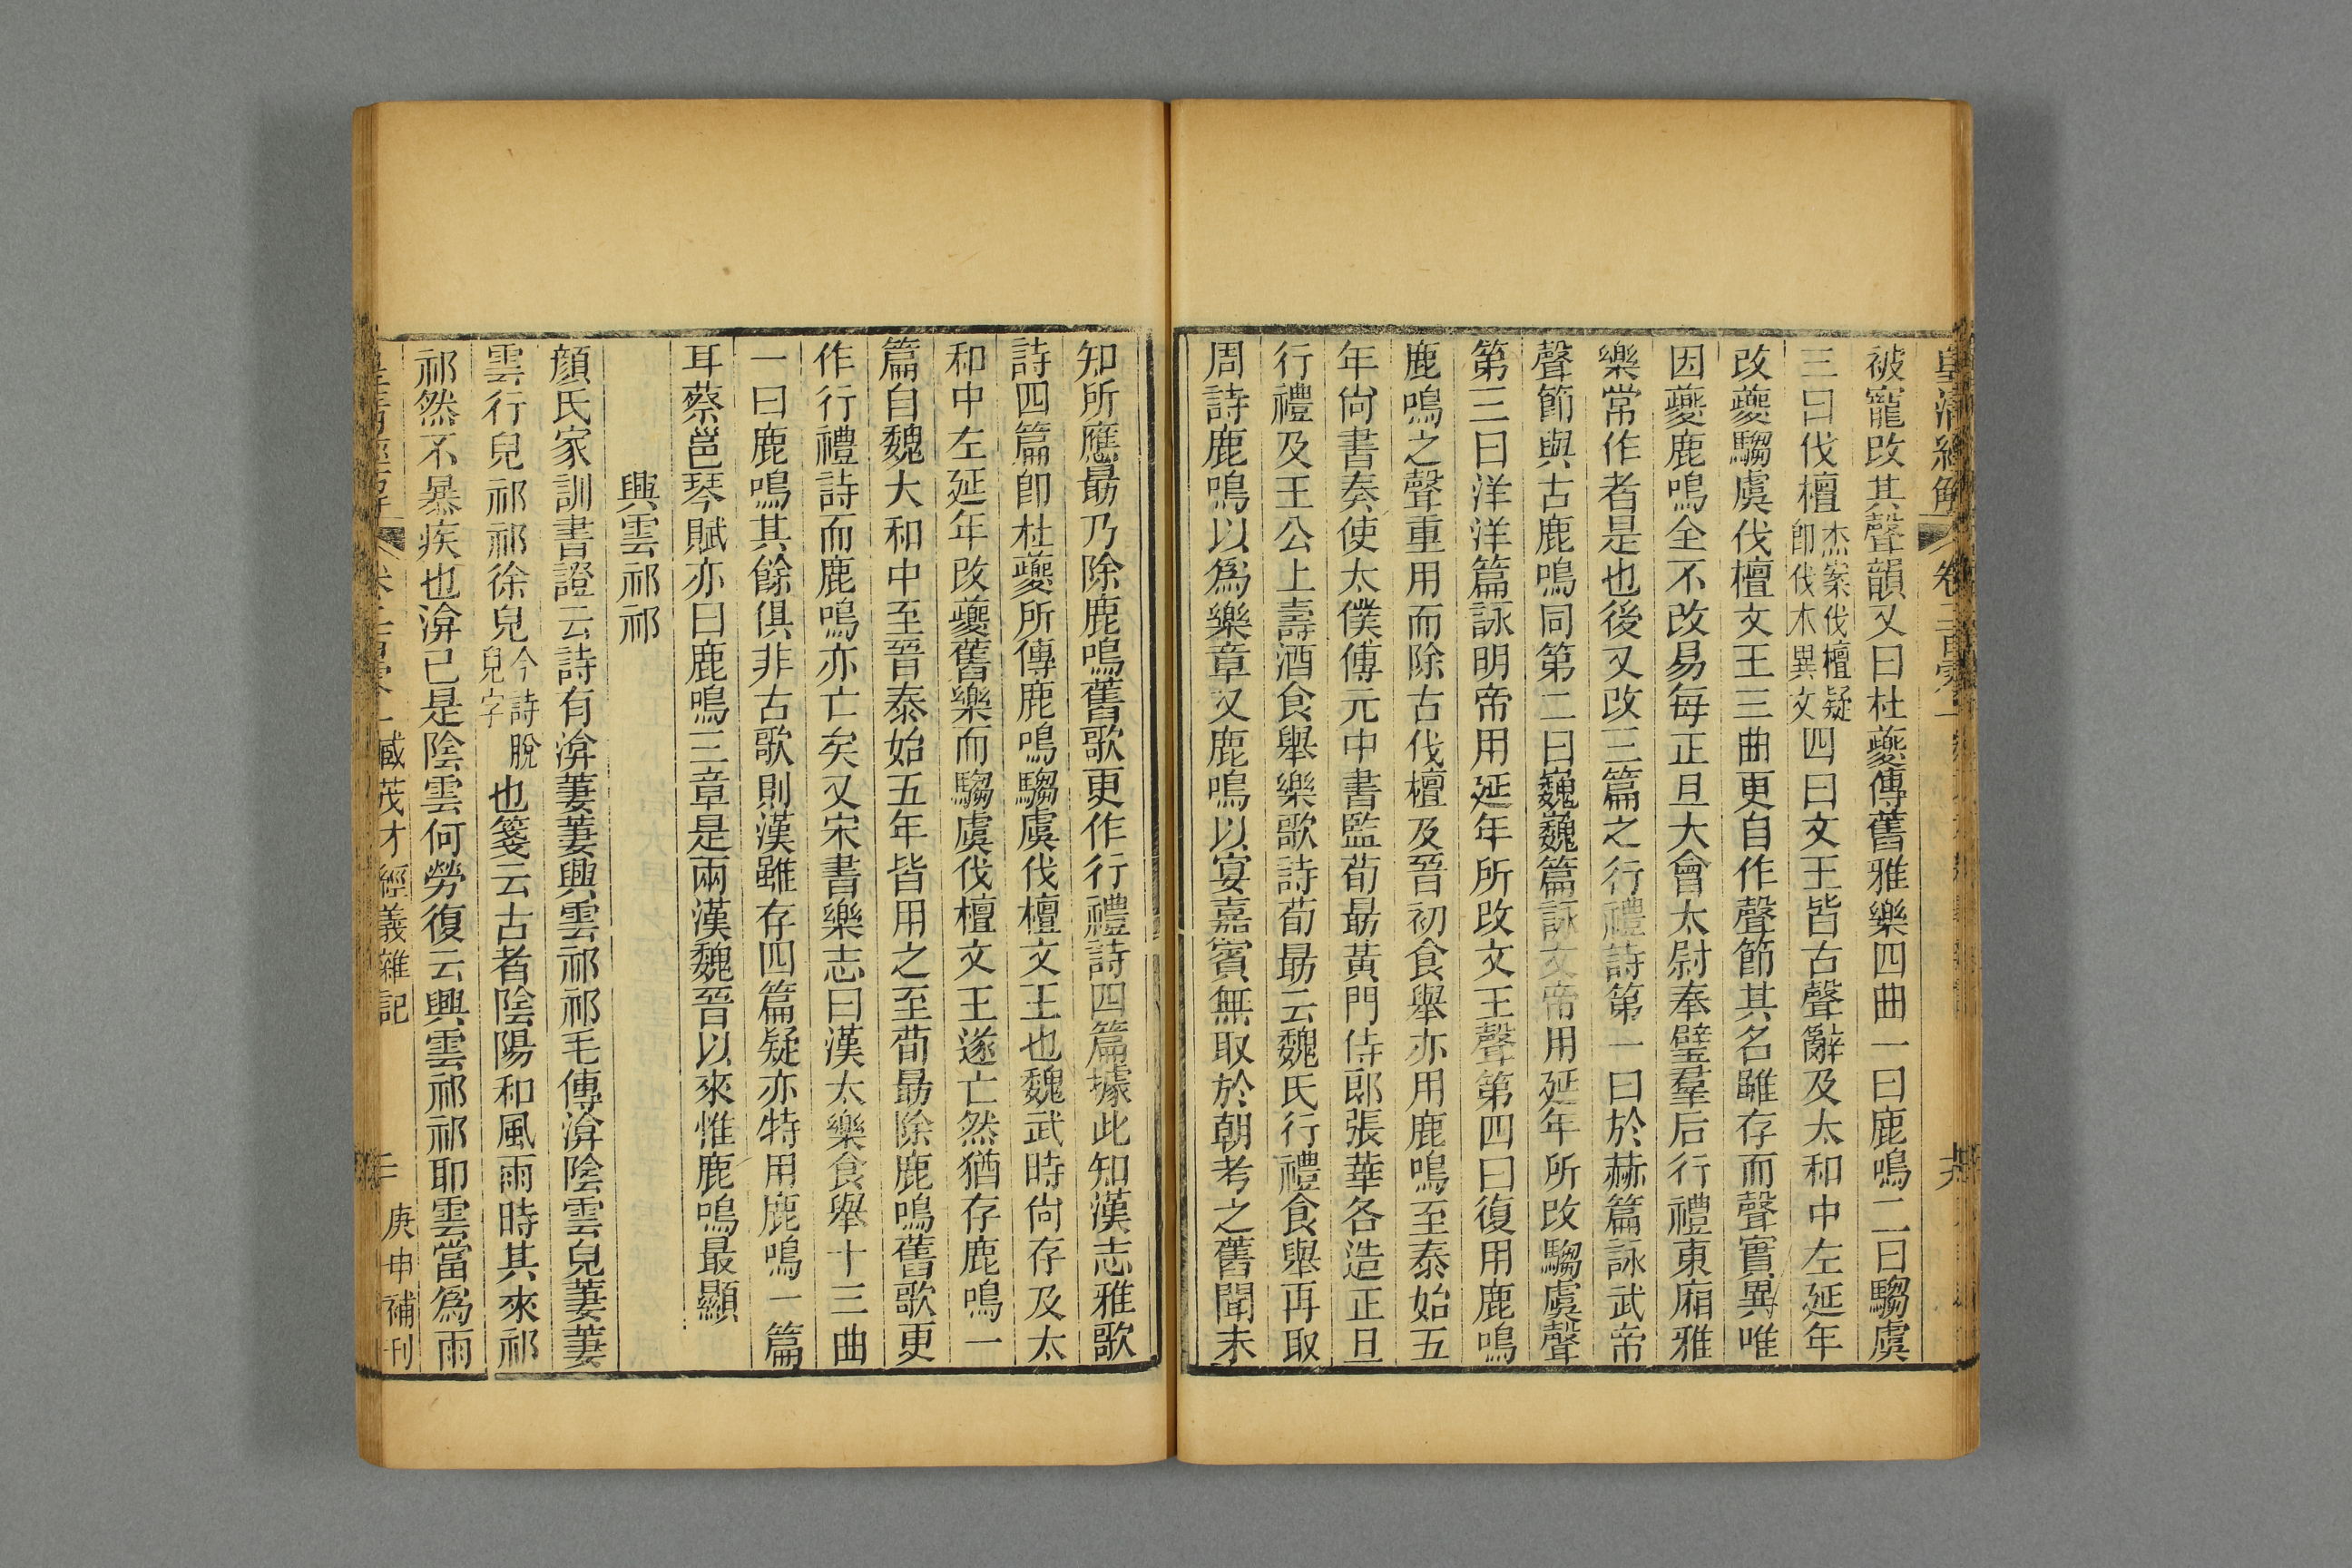 皇清經解 卷二百零一
被寵改其聲韻又曰杜夔傳舊雅樂四曲一曰鹿鳴二曰騶虞
三曰伐檀杰案伐檀疑卽伐木異文四曰文王皆古聲辭及太和中左延年
改夔騶虞伐檀文王三曲更自作聲節其名雖存而聲實異唯
因夔鹿鳴全不改易每正旦大會太尉奉璧羣后行禮東廂雅
樂常作者是也後又改三篇之行禮詩第一曰於赫篇詠武帝
聲節與古鹿鳴同第二曰巍巍篇詠文帝用延年所改騶虞聲
第三曰洋洋篇詠明帝用延年所改文王聲第四曰復用鹿鳴
鹿鳴之聲重用而除古伐檀及晉初食舉亦用鹿鳴至泰始五
年尙書奏使太僕傅元中書監荀勗黃門侍郎張華各造正旦
行禮及王公上壽酒食舉樂歌詩荀勗云魏氏行禮食舉再取
周詩鹿鳴以爲樂章又鹿鳴以宴嘉賓無取於朝考之舊聞未
知所應勗乃除鹿鳴舊歌更作行禮詩四篇據此知漢志雅歌
詩四篇卽杜夔所傳鹿鳴騶虞伐檀文王也魏武時尙存及太
和中左延年改夔舊樂而騶虞伐檀文王遂亡然猶存鹿鳴一
篇自魏大和中至晉泰始五年皆用之至荀勗除鹿鳴舊歌更
作行禮詩而鹿鳴亦亡矣又宋書樂志曰漢太樂食舉十三曲
一曰鹿鳴其餘俱非古歌則漢雖存四篇疑亦特用鹿鳴一篇
耳蔡邕琴賦亦曰鹿鳴三章是兩漢魏晉以來惟鹿鳴最顯
興雲祁祁
顏氏家訓書證云詩有渰萋萋興雲祁祁毛傳渰陰雲皃萋萋
雲行皃祁祁徐皃今詩脫皃字也箋云古者陰陽和風雨時其來祁
祁然不暴疾也渰已是陰雲何勞復云興雲祁祁耶雲當爲雨
皇清經解 卷二百零一 臧茂才經義雜記 三 庚申補刊